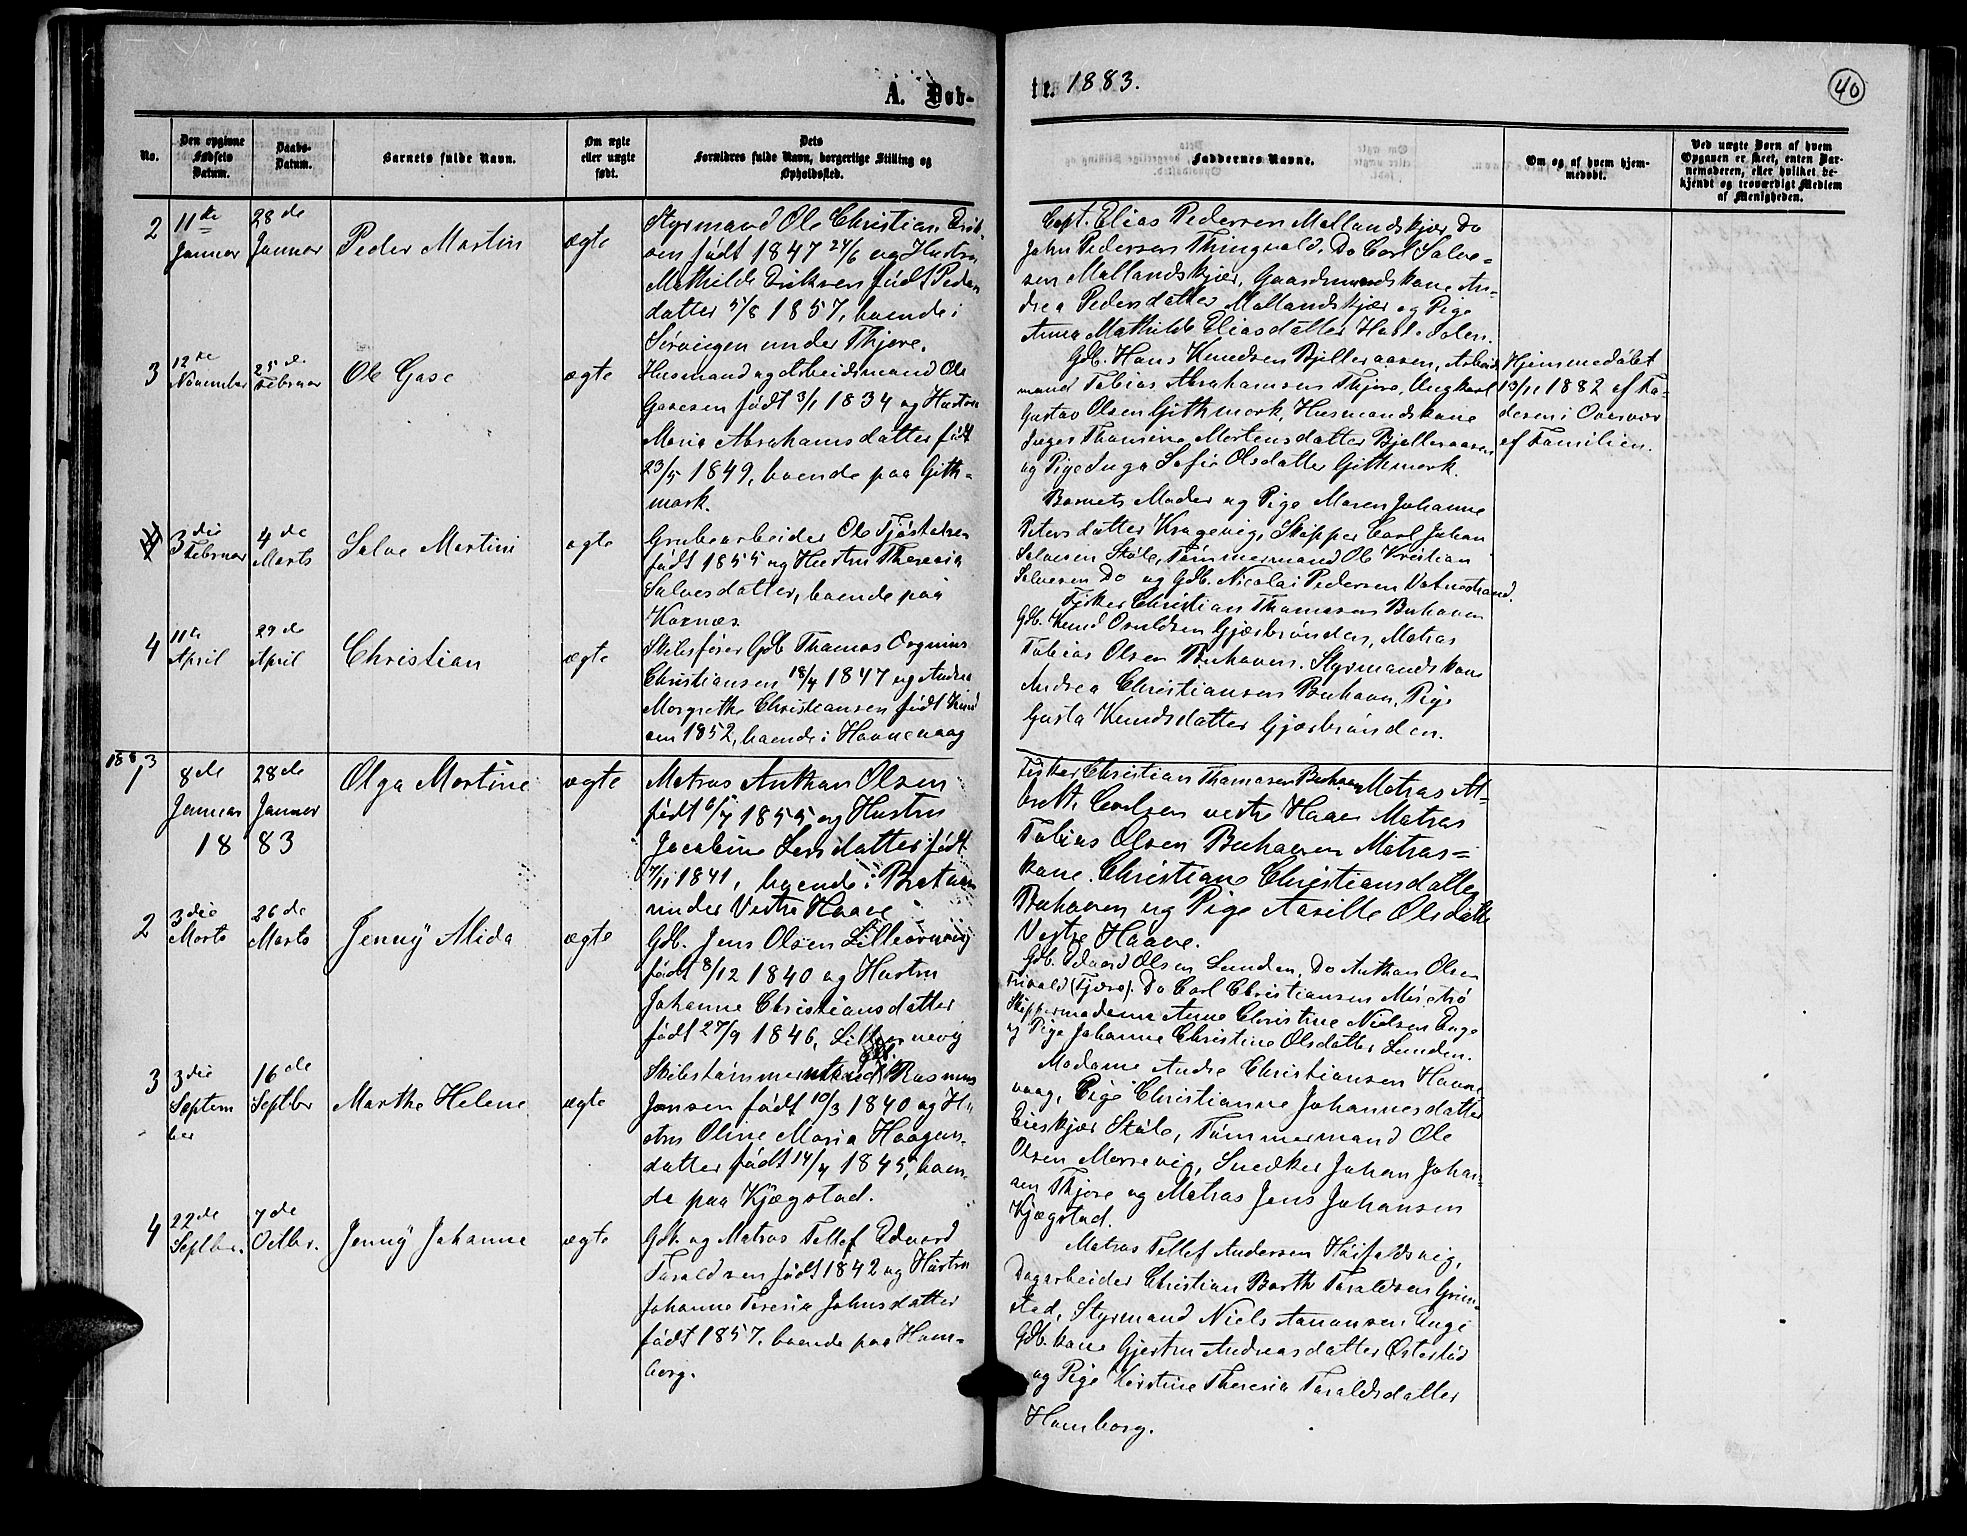 A. Døb-
te. 1883.
40
No.
Den opgivne
Fødsels
Datum.
Daabs-
Datum.
Barnets fulde Navn.
Om ægte
eller uægte
født.
Dets
Forældres fulde Navn, borgerlige Stilling og
Opholdssted.
Faddernes Navne.
Om og af hvem hjem-
medøbt.
Ved uægte Born af hvem
Opgaven er skeet, enten Bar-
nemoderen, eller hvilket be-
kjendt og troværdigt Medlem
af Menigheden.
2
11te
Januar
28de
Januar
Peder Martin
ægte
Styrmand Ole Christian Erik-
sen født 1847 24/6 og Hustru
Mathilde Eriksen født Peders
datter 5/8 1857, boende i
under Thjore.
Capt. Elias Pedersen Mollandskjær Do
John Pedersen Thingvald, Do Carl Salve-
sen Mollandskjær, Gaardmandskone An-
drea Pedersdatter Mollandskjær og Pige
Anna Mathilde Eliasdatter
3
12te
November
25de
Februar
Ole Gase
ægte
Husmand og Arbeidsmand Ole
Gasesen født 3/1 1834 og Hustru
Maria Abrahamsdatter født
23/5 1849, boende paa Gith-
mark.
Gdb. Hans Knudsen Bjelleraasen, Arbeids
mand Tobias Abrahamsen Thjore, Ungkarl
Gustav Olsen Githmark, Husmandskone
Inger Thomine Mortensdatter Bjelleraasen
og Pige Inga Sofie Olsdatter Githmark.
Hjemmedøbt
13/11 1882 af Fa-
deren i Overvær
af Familien.
3die
Februar
4de
Marts
Salve Martin
ægte
Grubearbeider Ole Tjøstolsen
født 1855 og Hustru Theresia
Salvesdatter, boende paa
Kornæs.
Barnets Moder og Pige Maren Johanne
Petersdatter Kragevig, Skipper Carl Johan
Salvesen Skåle, Tømmermand Ole Kristian
Salvesen Do og Gdb. Nicolai Pedersen Vatnestrand.
4
11te
April
29de
April
Christian
ægte
Skibsfører Gdb Thomas
Christiansen 18/4 1847 og Andrea
Margrethe Christiansen født Knud
sen 1852, boende i Havnevaag
Fisker Christian Thomasen Buhaven
Gdb. Knud Osuldsen Gjærbrønden, Matros
Tobias Olsen Buhaven. Styrmandskone
Andrea Christiansen Buhaven, Pige
Gusta Knudsdatter Gjærbrønden.
1883
1
8de
Januar
28de
Januar
1883
Olga Martine
ægte
Matros Anthon Olsen
født 6/7 1855 og Hustru
Jacobine Larsdatter født
7/11 1841, boende i
under Vestre Haave
Fisker Christian Thomasen Buhaven Matros Al-
breth Carlsen vestre Haave Matros
Tobias Olsen Buhaven Matros-
kone Christiane Christiansdatter
Buhaven og Pige Aasille Olsdatter
Vestre Haave.
2
3die
Marts
26de
Marts
Jenny Alida
ægte
Gdb. Jens Olsen Lilleørnevig
født 8/12 1840 og Hustru
Johanne Christiansdatter
født 27/9 1846, Lilleørnevig
Gdb. Edvard Olsen Lunden, Do Anthon Olsen
Trivold (Fjære). Do Carl Christiansen
Skippermadame Anne Christine Nielsen Enge
og Pige Johanne Christine Olsdatter Lunden.
3
3die
Septem
ber
16de
Septbr
Marthe Helene
ægte
Skibstømmermand Rasmus
Jensen født 10/3 1840 og Hu
stru Oline Maria Haagens-
datter født 14/4 1845, boen-
de paa Kjægstad.
Madame Andrea Christiansen Havne
vaag, Pige Christianne Johannesdatter
Skåle, Tømmermand Ole
Olsen Morrevig, Snedker Johan Johan-
sen Thjore og Matros Jens Johansen
Kjægstad.
4
22de
Septbr.
7de
Octbr.
Jenny Johanne
ægte
Gdb. og Matros Tellef Edvard
Taraldsen født 1842 og Hustru
Johanne Teresia Johnsdatter
født 1857. boende paa Hom-
borg.
Matros Tellef Andersen Høifaldsvig,
Dagarbeider Christian Barth Taraldsen Grim-
stad, Styrmand Niels Aanonsen Enge
Gdb.kone Gjertru Andreasdatter
og Pige Kirstine Theresia Taraldsdatter
Homborg.